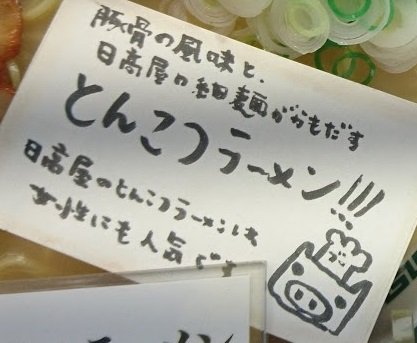 豚骨の風味と、
日高屋の細麺がかもだす
とんこつラーメン!!!
日高屋のとんこつラーメンは
女性にも人気です